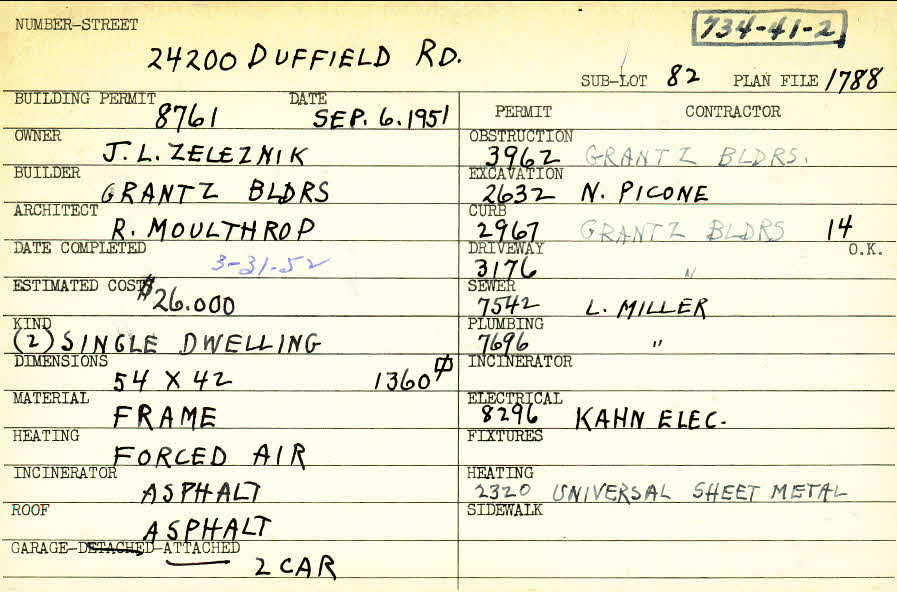 NUMBER-STREET
734-41-2
24200 DUFFIELD RD.
SUB-LOT 82 PLAN FILE 1788
BUILDING PERMIT DATE
8761 SEP. 6.1951
OWNER
J.L. ZELEZNIK
BUILDER
GRANTZ BLDRS
ARCHITECT
R. MOULTHROP
DATE COMPLETED
3-31-52
ESTIMATED COST
$26.000
KIND
(2) SINGLE DWELLING
DIMENSIONS
54 X 42 1360 ⌀
MATERIAL
FRAME
HEATING
FORCED AIR
INCINERATOR
ASPHALT
ROOF
ASPHALT
GARAGE-DETACHED-ATTACHED
2 CAR
PERMIT CONTRACTOR
OBSTRUCTION
3962 GRANTZ BLDRS.
EXCAVATION
2632 N. PICONE
CURB
2967 GRANTZ BLDRS 14
DRIVEWAY O.K.
3176 "
SEWER
7542 L. MILLER
PLUMBING
7696 "
INCINERATOR
ELECTRICAL
8296 KAHN ELEC.
FIXTURES
HEATING
2320 UNIVERSAL SHEET METAL
SIDEWALK